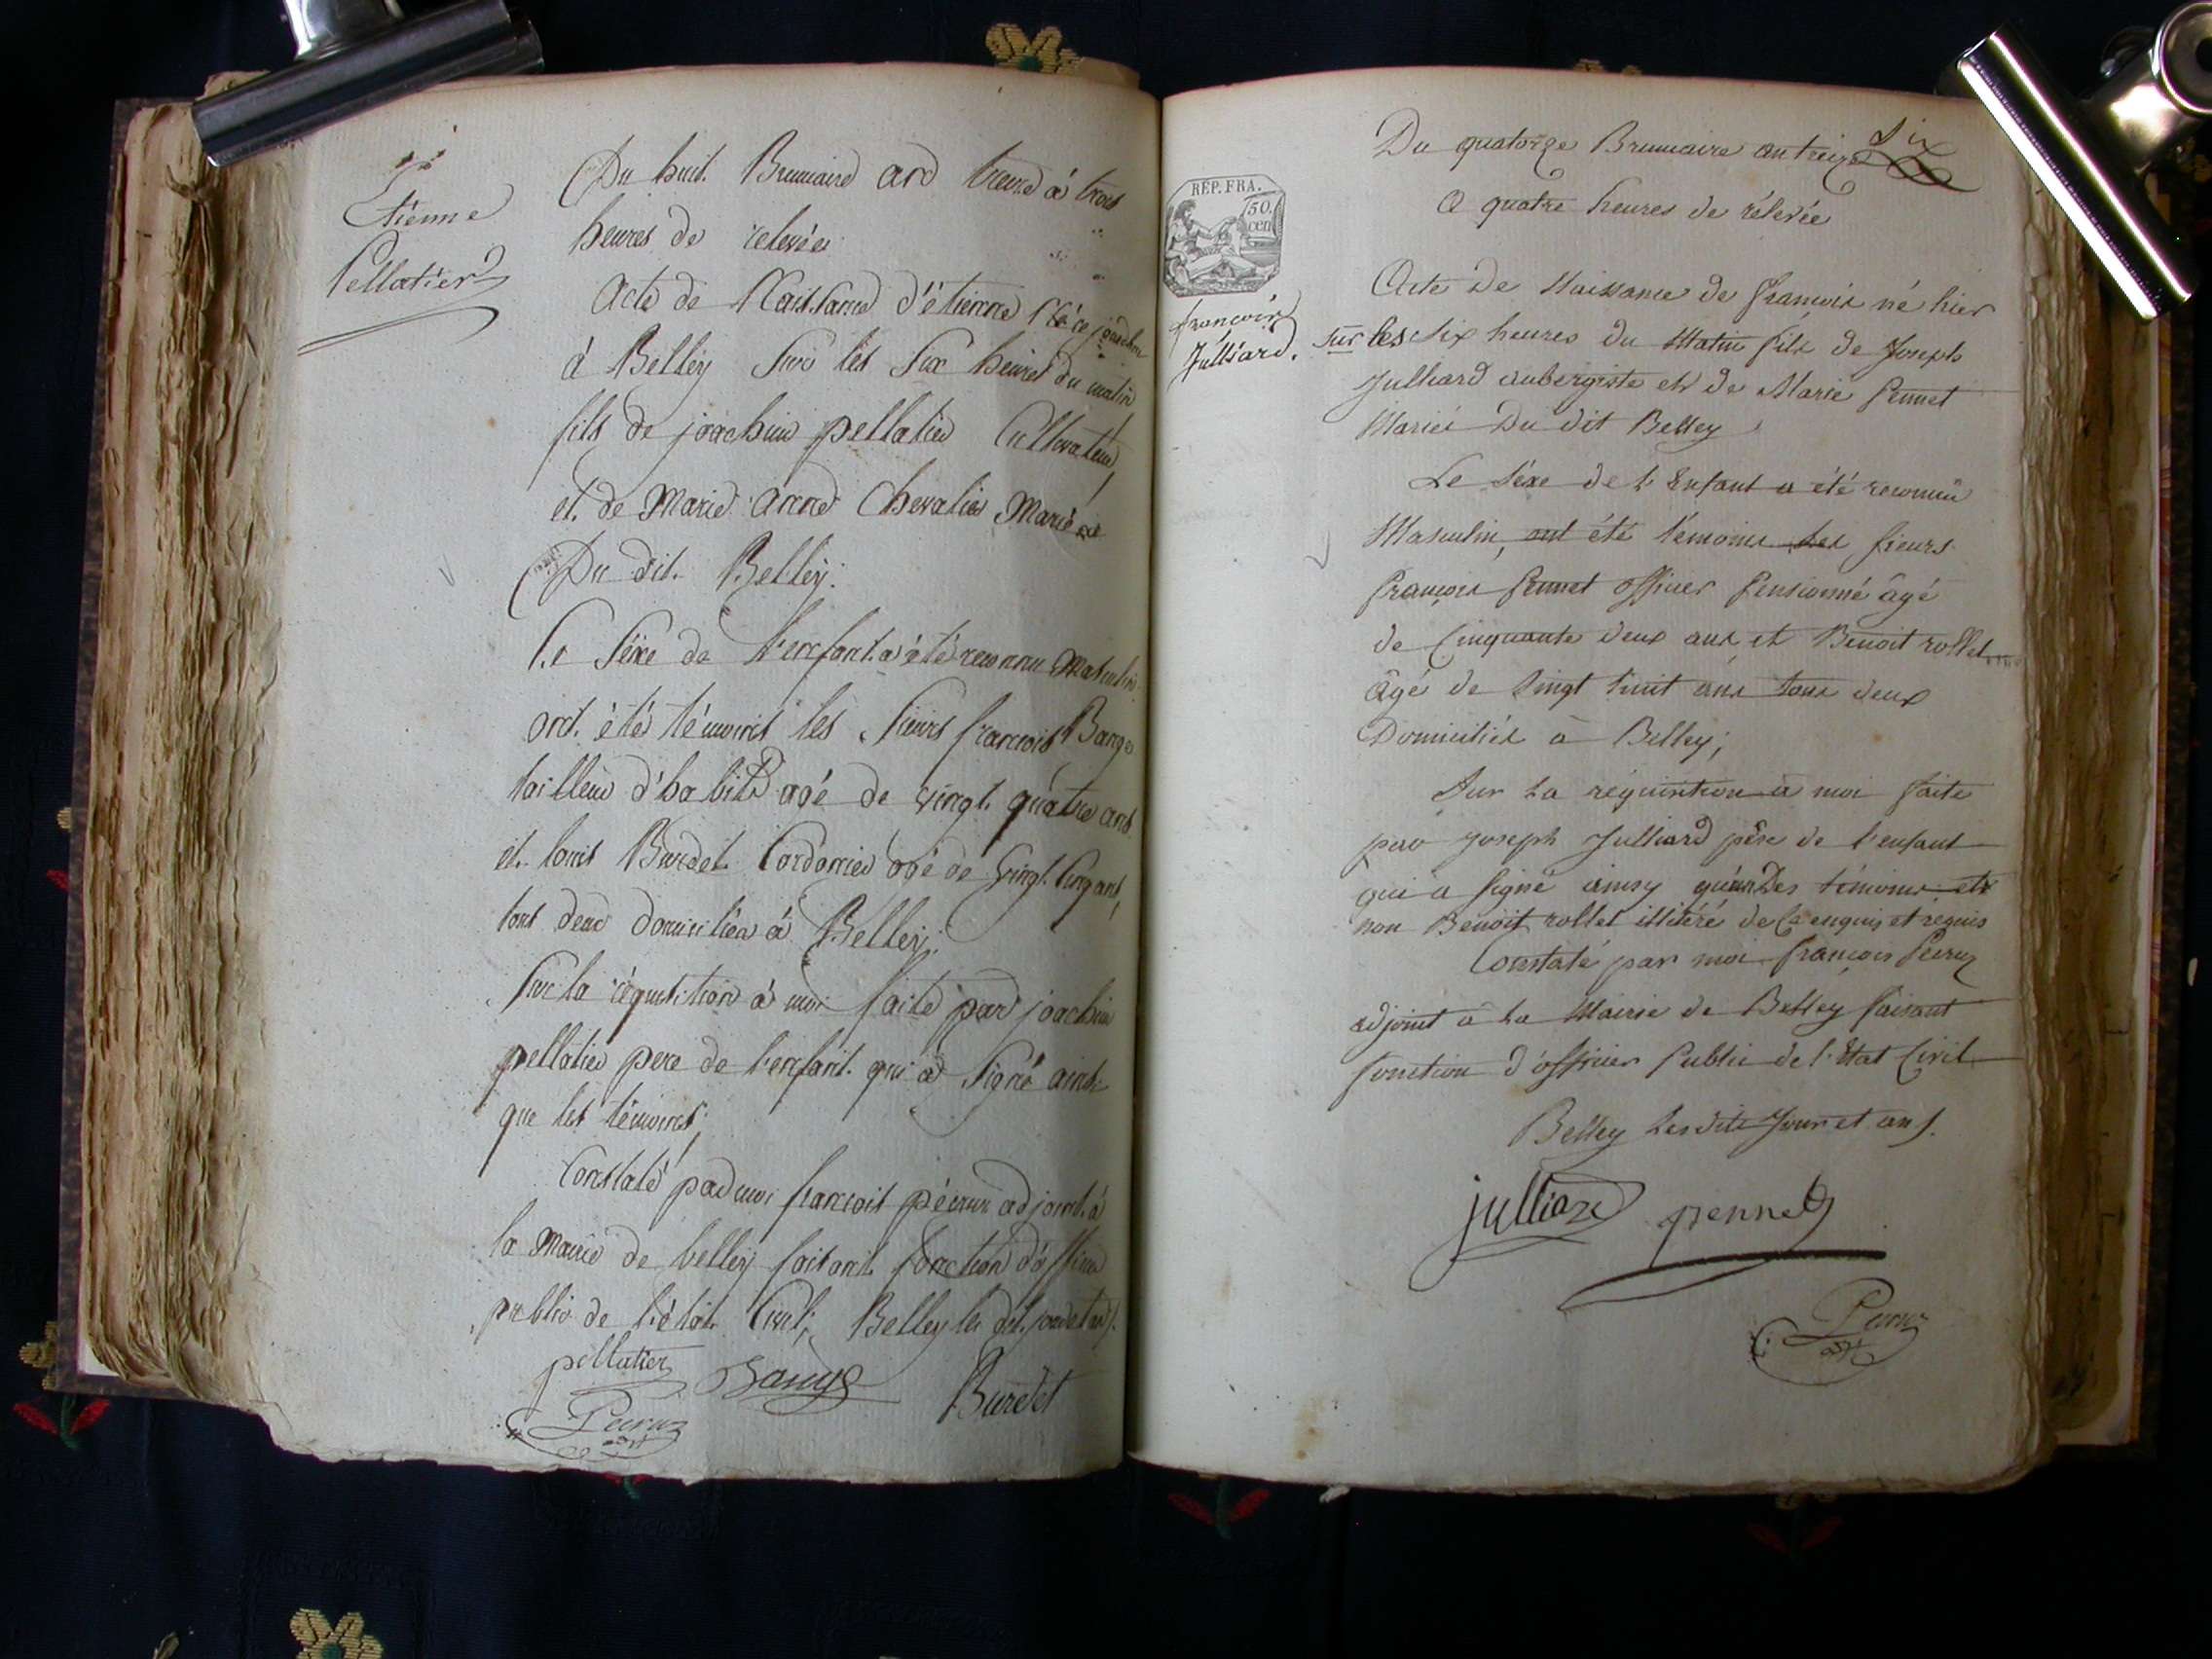 Etienne
Pellatier
Du huit Brumaire an treize à trois
heures de relevée
acte de Naissance d'étienne né ce jourdhui
à Belley sur les six heures du matin
fils de joachim pellatier Cultivateur
et de Marie anne Chevalier Mariés
Du dit Belley.
Le séxe de l'enfant a été reconnu Masculin
ont été témoins les sieurs françois Bange
tailleur d'habits agé de vingt quatre ans
et louis Burdet Cordonnier agé de vingt cinq ans,
tous deux domiciliés à Belley;
Sur la réquisition à moi faite par joachim
pellatier pere de l'enfant qui a signé ainsi
que les témoins;
Constaté par moi françois pécruz adjoint à
la Mairie de belley faisant fonction d'officier
public de l'état Civil; Belley les dit jour et an.
pellatier Bange Burdet
Pecruz
RÉP. FRA.
50.
cen
françois
Julliard.
Du quatorze Brumaire an treize
a quatre heures de rélevée
Acte de Naissance de françois né hier
sur les six heures du Matin fils de Joseph
Julliard aubergiste et de Marie Pennet
Mariés Du dit Belley
Le séxe de l'Enfant a été reconnu
Masculin, ont été témoins les sieurs
françois Pennet officier Pensionné âgé
de Cinquante deux ans et Benoit rollet
âgé de vingt huit ans tous deux
Domiciliés à Belley;
Sur la réquisition a moi faite
par Joseph Julliard père de l'enfant
qui a signé ainsy qu'un Des témoins et
non Benoit rollet illitéré de ce enquis et requis
Constaté par moi françois Pecruz
adjoint a la Mairie de Belley faisant
fonction d'officier Public de l'Etat Civil
Belley les dits Jour et an.
julliard pennet
Pecruz